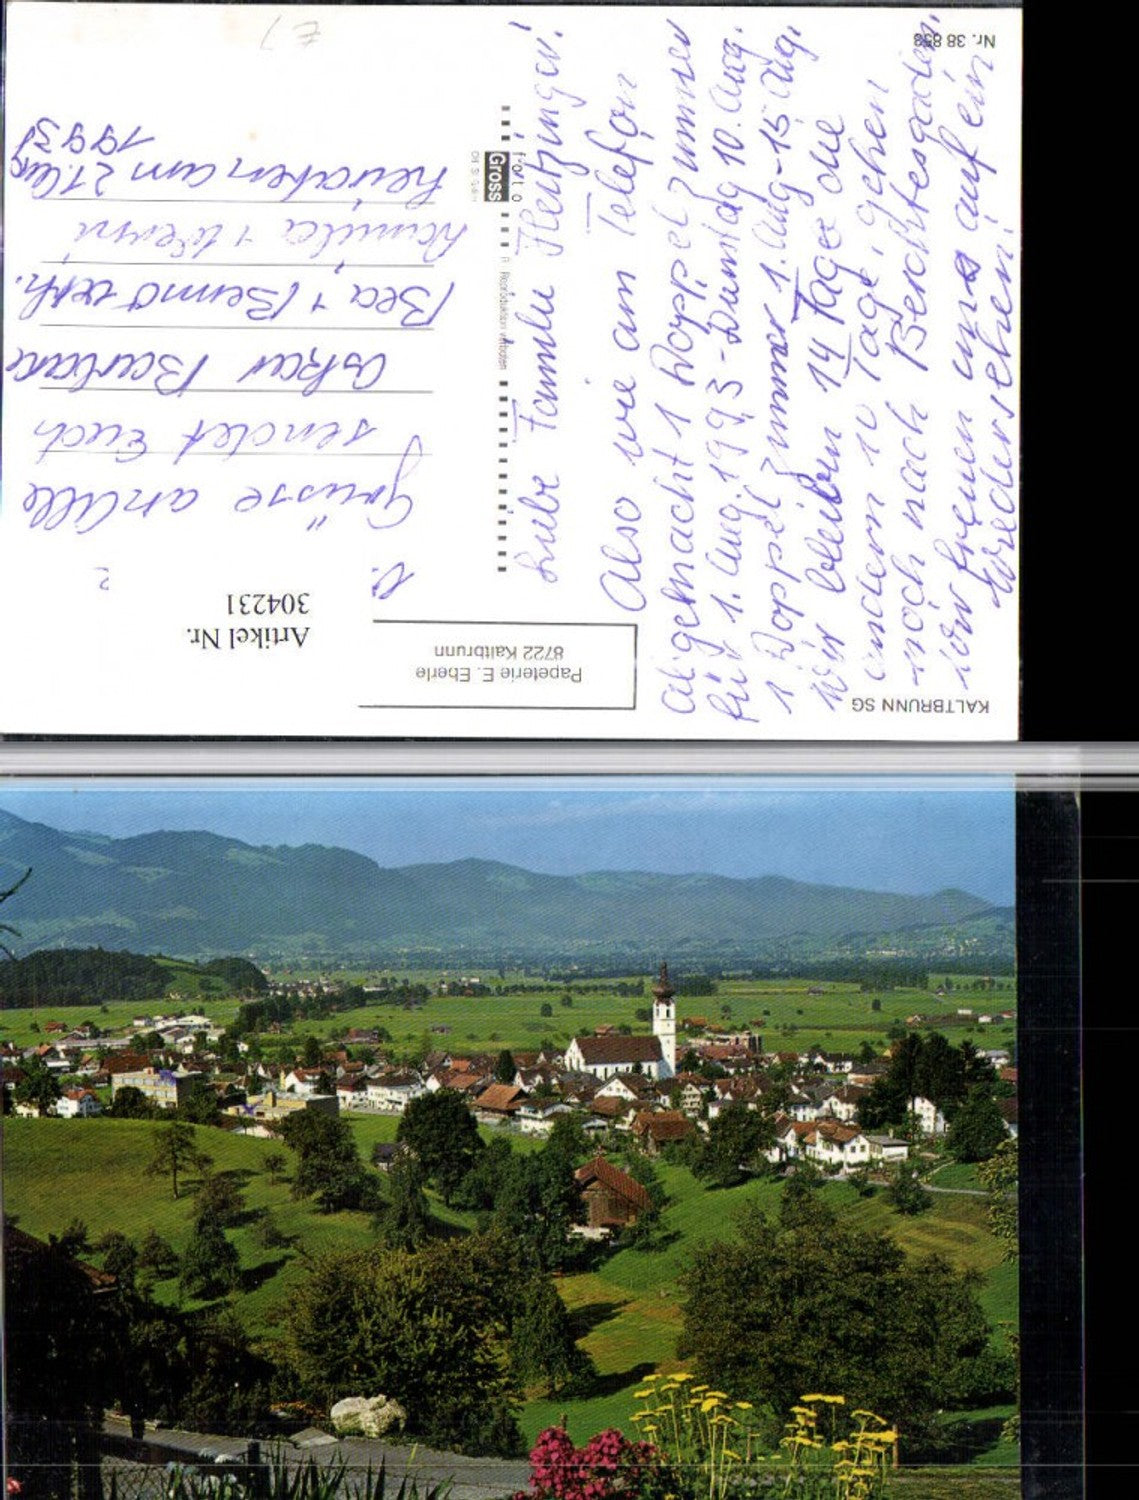 Nr. 38 858
KALTBRUNN SG
Papeterie E. Eberle
8722 Kaltbrunn
Artikel Nr.
304231
Gross
Reproduktion verboten
Liebe Familie
Also wie am Telefon
abgemacht 1 Doppelzimmer
für 1. Aug. 1993 - Dienstag 10. Aug.
1 Doppel Zimmer 1. Aug - 15 Aug.
Wir bleiben 14 Tage die
andern 10 Tage, gehen
noch nach Berchtesgaden.
Wir freuen uns auf ein
Wiedersehen!
Grüsse an Alle
sendet Euch
Oskar
Bea + Benno
+ Werni
heiraten am 21. Aug
1993!